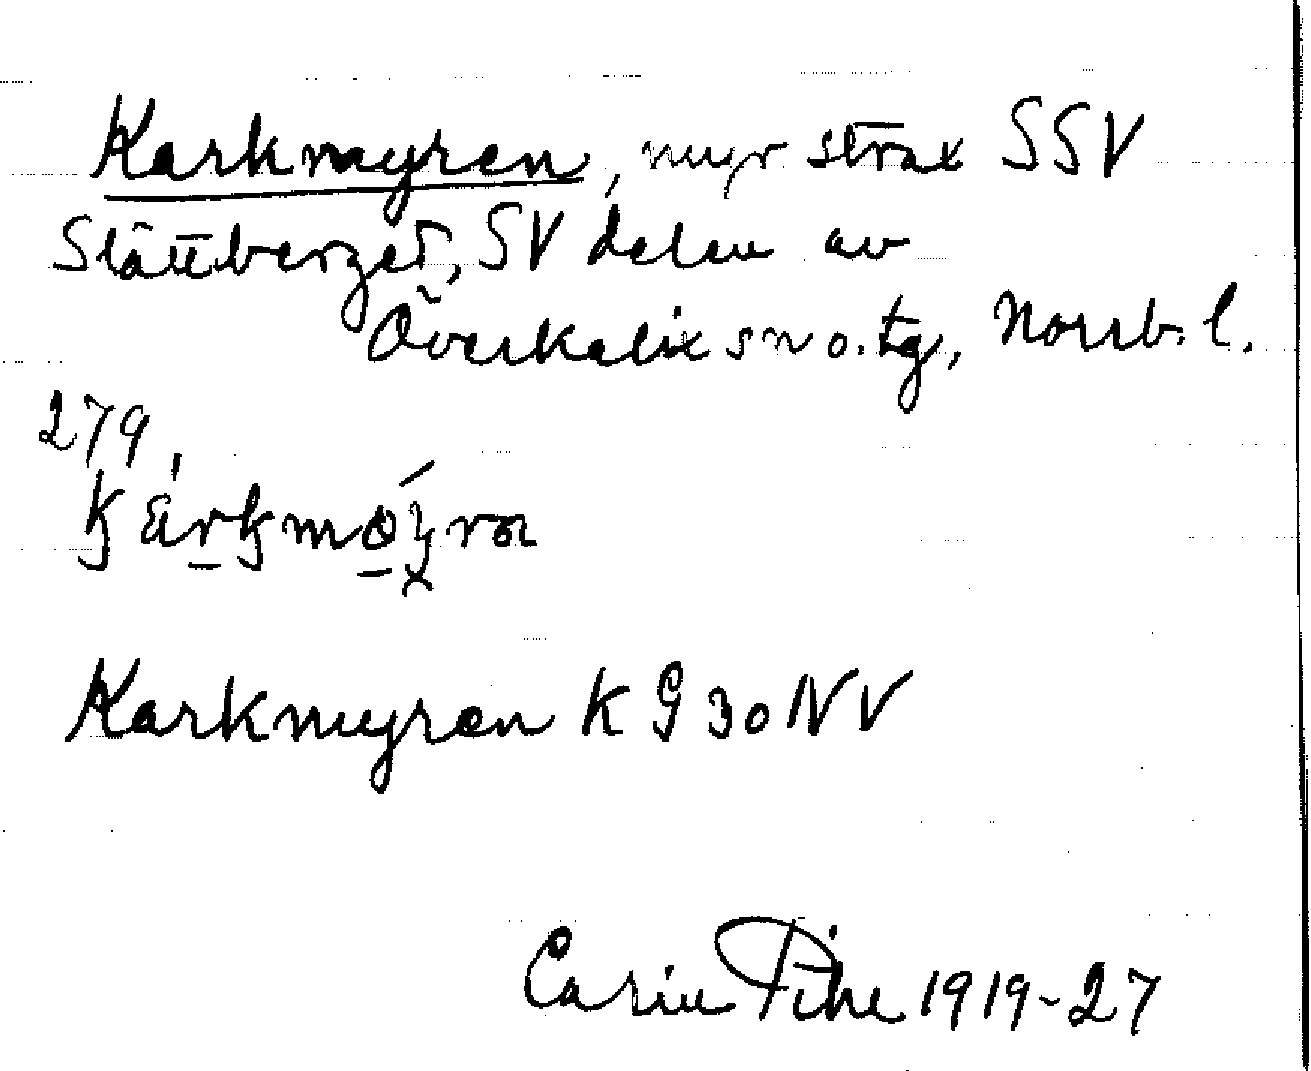 Karkmyren, myr strax SSV
Slättberget, SV delen av
Överkalix sn o. tg, Norrb. l.
279
Karkmyren K G 30 NV
Carin Pihl 1919-27